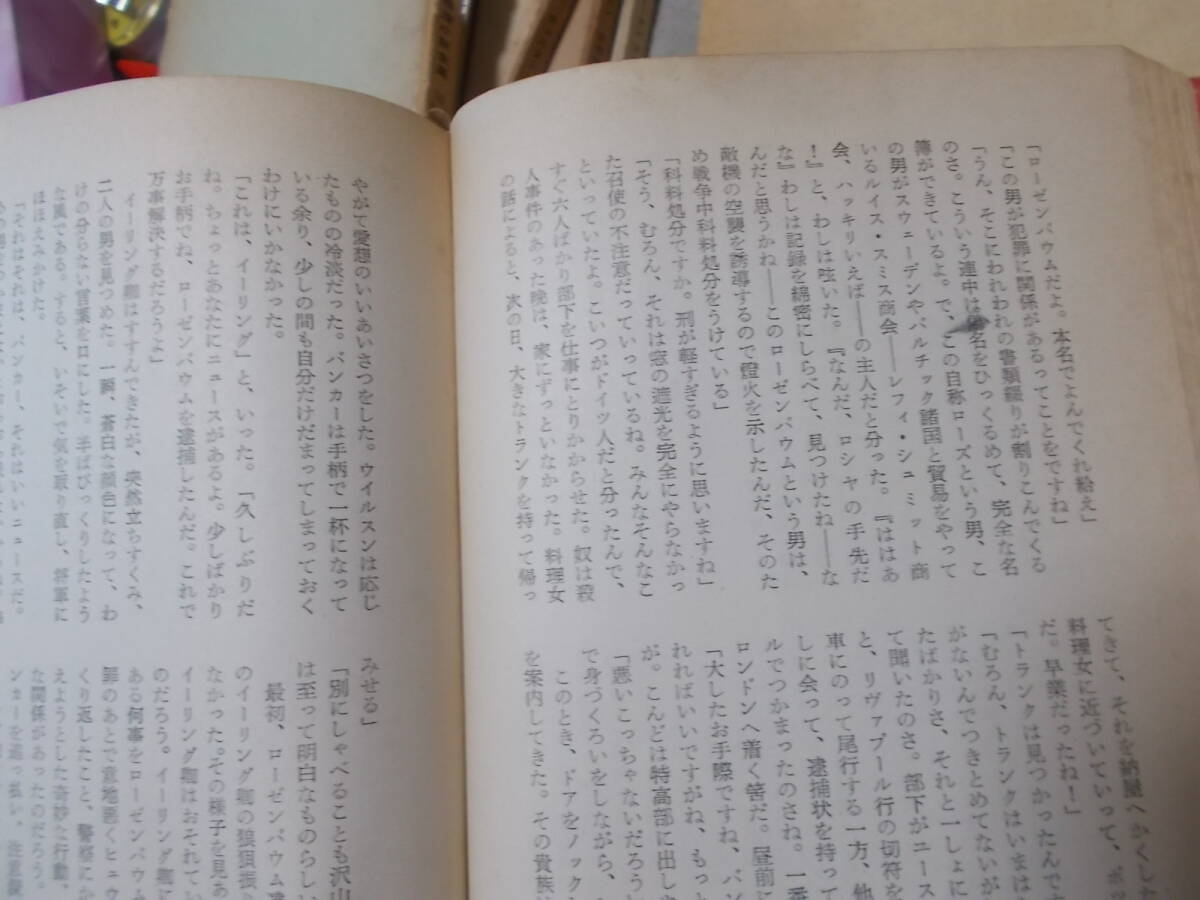 「ローゼンバウムだよ。本名でよんでくれ給え」
「この男が犯罪に関係があるってことをですね」
「うん、そこにわれわれの書類綴りが割りこんでくる
のさ。こういう連中は名をひっくるめて、完全な名
簿ができているよ。で、この自称ローズという男、こ
の男がスウェーデンやバルチック諸国と貿易をやって
いるルイス・スミス商会――レフィ・シュミット商
会、ハッキリいえば――の主人だと分った。『ははあ
！』と、わしは呟いた。『なんだ、ロシヤの手先だ
な』わしは記録を綿密にしらべて、見つけたね――な
んだと思うかね――このローゼンバウムという男は、
敵機の空襲を誘導するので燈火を示したんだ、そのた
め戦争中科料処分をうけている」
「科料処分ですか。刑が軽すぎるように思いますね」
「そう、むろん、それは窓の遮光を完全にやらなかっ
た召使の不注意だっていっているね。みんなそんなこ
といっていたよ。こいつがドイツ人だと分ったんで、
すぐ六人ばかり部下を仕事にとりかからせた。奴は殺
人事件のあった晩は、家にずっといなかった。料理女
の話によると、次の日、大きなトランクを持って帰っ
てきて、それを納屋へかくした
料理女に近づいていって、ポツ
だ。早業だったね！」
「トランクは見つかったんです
「むろん、トランクはいまは
がないんでつきとめてないが
たばかりさ、それと一しょに
て聞いたのさ。部下がユース
と、リヴァプール行の切符を
車にのって尾行する一方、他
しに会って、逮捕状を持って
ルでつかまったのさね。一番
ロンドンへ着く筈だ。昼前に
「大したお手際ですね、バン
れればいいですがね、もっと
が。こんどは特高部に出し
「悪いこっちゃないだろうし
で身づくろいをしながら、
このとき、ドアをノック
を案内してきた。その貴族
やがて愛想のいいあいさつをした。ウイルスンは応じ
たものの冷淡だった。バンカーは手柄で一杯になって
いる余り、少しの間も自分だけだまってしまっておく
わけにいかなかった。
「これは、イーリング」と、いった。「久しぶりだ
ね。ちょっとあなたにニュースがあるよ。少しばかり
お手柄でね、ローゼンバウムを逮捕したんだ。これで
万事解決するだろうよ」
イーリング卿はすすんできたが、突然立ちすくみ、
二人の男を見つめた。一瞬、蒼白な顔色になって、わ
けの分らない言葉を口にした。半ばびっくりしたよう
な風である。すると、いそいで気を取り直し、将軍に
ほほえみかけた。
「それはそれは、バンカー、それはいいニュースだ。
みせる」
「別にしゃべることも沢山
は至って明白なものらしい
最初、ローゼンバウム逮
のイーリング卿の狼狽振
なかった。その様子を見あ
イーリング卿はおそれてい
のだろう。イーリング卿と
ある何事をローゼンバウ
罪のあとで意地悪くヒュウ
くり返したこと、警察にか
えようとした奇妙な行動、
な関係があったのだろう。
ンカーを追っ払い、注意深